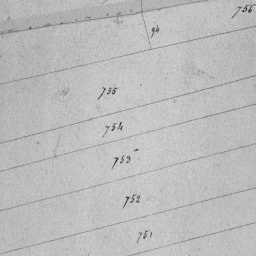 756
94
755
754
753
752
751